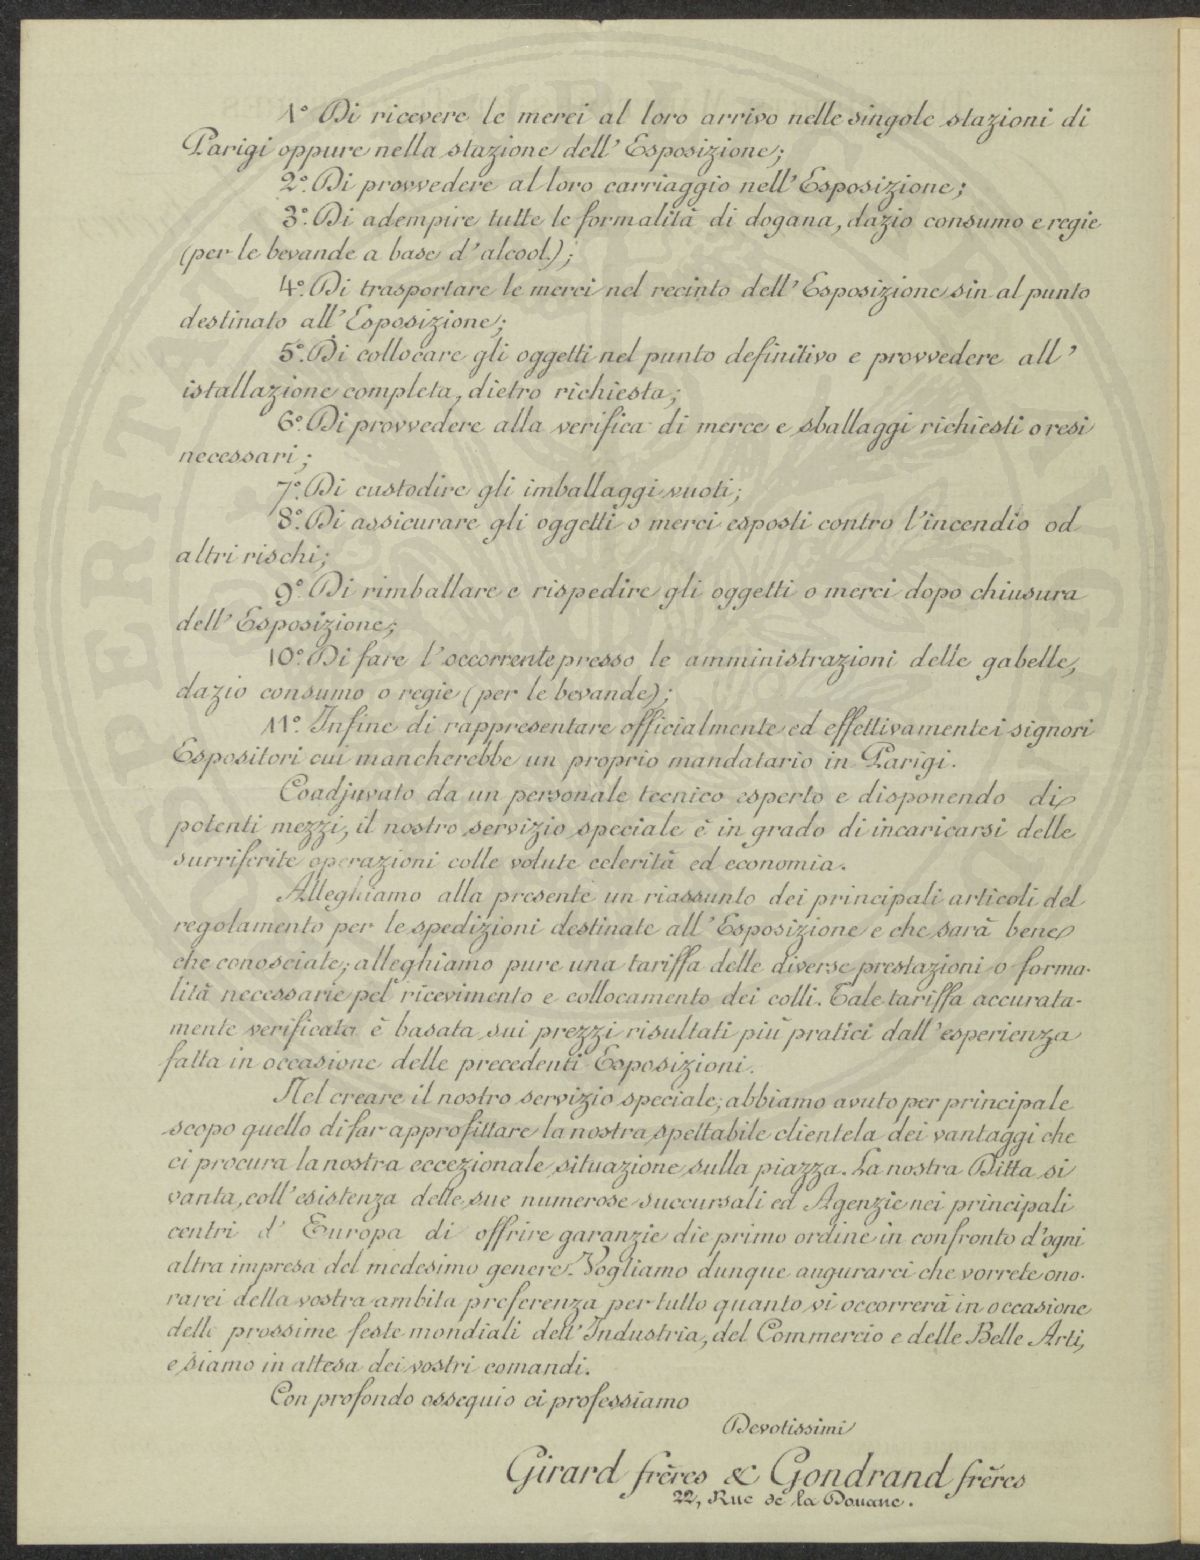 1º Di ricevere le merci al loro arrivo nelle singole stazioni di
Parigi oppure nella stazione dell' Esposizione;
2º. Di provvedere al loro carriaggio nell' Esposizione;
3º. Di adempire tutte le formalità di dogana, dazio consumo e regie
(per le bevande a base d' alcool.);
4º. Di trasportare le merci nel recinto dell' Esposizione sin al punto
destinato all' Esposizione;
5º. Di collocare gli oggetti nel punto definitivo e provvedere all'
istallazione completa, dietro richiesta;
6º. Di provvedere alla verifica di merce e sballaggi richiesti o resi
necessari;
7º. Di custodire gli imballaggi vuoti;
8º. Di assicurare gli oggetti o merci esposti contro l'incendio od
altri rischi;
9º. Di rimballare e rispedire gli oggetti o merci dopo chiusura
dell' Esposizione;
10º. Di fare l'occorrente presso le amministrazioni delle gabelle,
dazio consumo o regie (per le bevande);
11º. Infine di rappresentare officialmente ed effettivamente i signori
Espositori cui mancherebbe un proprio mandatario in Parigi.
Coadjuvato da un personale tecnico esperto e disponendo di
potenti mezzi, il nostro servizio speciale è in grado di incaricarsi delle
surriferite operazioni colle volute celerità ed economia.
Alleghiamo alla presente un riassunto dei principali articoli del
regolamento per le spedizioni destinate all' Esposizione e che sarà bene
che conosciate; alleghiamo pure una tariffa delle diverse prestazioni o forma-
lità necessarie pel ricevimento e collocamento dei colli. Tale tariffa accurata-
mente verificata è basata sui prezzi risultati più pratici dall' esperienza
fatta in occasione delle precedenti Esposizioni.
Nel creare il nostro servizio speciale, abbiamo avuto per principale
scopo quello di far approfittare la nostra spettabile clientela dei vantaggi che
ci procura la nostra eccezionale situazione sulla piazza. La nostra Ditta si
vanta, coll' esistenza delle sue numerose succursali ed Agenzie nei principali
centri d' Europa di offrire garanzie die primo ordine in confronto d'ogni
altra impresa del medesimo genere. Vogliamo dunque angurarci che vorrete ono-
rarci della vostra ambita preferenza per tutto quanto vi occorrerà in occasione
delle prossime feste mondiali dell' Industria, del Commercio e delle Belle Arti,
e siamo in attesa dei vostri comandi.
Con profondo ossequio ci professiamo
Devotissimi
Girard frères & Gondrand frères
22, Rue de la Douane.